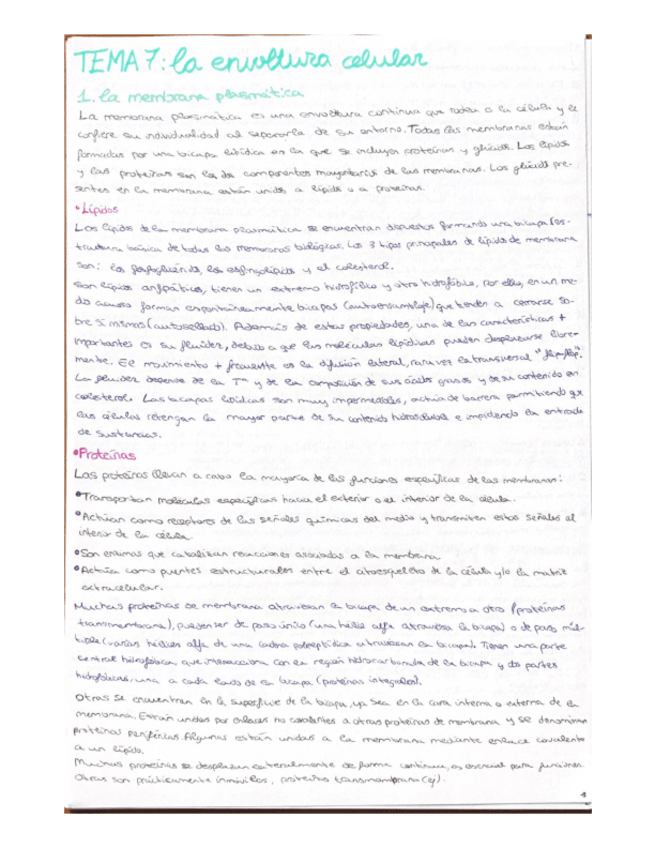 TEMA 7: la envoltura celular
1. La membrana plasmática
La membrana plasmática es una envoltura continua que rodea a la célula y le
confiere su individualidad al separarla de su entorno. Todas las membranas están
formadas por una bicapa lipídica en la que se incluyen proteínas y glúcidos. Los lípidos
y las proteínas son los dos componentes mayoritarios de las membranas. Los glúcidos pre-
sentes en la membrana están unidos a lípidos o a proteínas.
• Lípidos
Los lípidos de la membrana plasmática se encuentran dispuestos formando una bicapa (es-
tructura básica de todas las membranas biológicas. Los 3 tipos principales de lípidos de membrana
son: los fosfoglicéridos, los esfingolípidos y el colesterol.
Son lípidos anfipáticos, tienen un extremo hidrofílico y otro hidrofóbico, por ello, en un me-
dio acuoso forman espontáneamente bicapas (autoensamblaje) que tienden a cerrarse so-
bre sí mismas (autosellado). Además de estas propiedades, una de las características +
importantes es su fluidez, debido a que las moléculas lipídicas pueden desplazarse libre-
mente. El movimiento + frecuente es la difusión lateral, rara vez la transversal "flip-flop".
La fluidez depende de la Tª y de la composición de sus ácidos grasos y de su contenido en
colesterol. Las bicapas lipídicas son muy impermeables, actúa de barrera permitiendo que
las células retengan la mayor parte de su contenido hidrosoluble e impidiendo la entrada
de sustancias.
• Proteínas
Las proteínas llevan a cabo la mayoría de las funciones específicas de las membranas:
• Transportan moléculas específicas hacia el exterior o el interior de la célula.
• Actúan como receptores de las señales químicas del medio y transmiten estas señales al
interior de la célula.
• Son enzimas que catalizan reacciones asociadas a la membrana
• Actúa como puentes estructurales entre el citoesqueleto de la célula y/o la matriz
extracelular.
Muchas proteínas de membrana atraviesan la bicapa de un extremo a otro (proteínas
transmembrana), pueden ser de paso único (una hélice alfa atraviesa la bicapa) o de paso múl-
tiple (varias hélices alfa de una cadena polipeptídica atraviesan la bicapa). Tienen una parte
central hidrofóbica, que interacciona con la región hidrocarbonada de la bicapa y dos partes
hidrofílicas, una a cada lado de la bicapa (proteínas integrales).
Otras se encuentran en la superficie de la bicapa, ya sea en la cara interna o externa de la
membrana. Están unidas por enlaces no covalentes a otras proteínas de membrana y se denominan
proteínas periféricas. Algunas están unidas a la membrana mediante enlace covalente
a un lípido.
Muchas proteínas se desplazan lateralmente de forma continua, es esencial para funciones.
Otras son prácticamente inmóviles, proteínas transmembrana (ej).
1